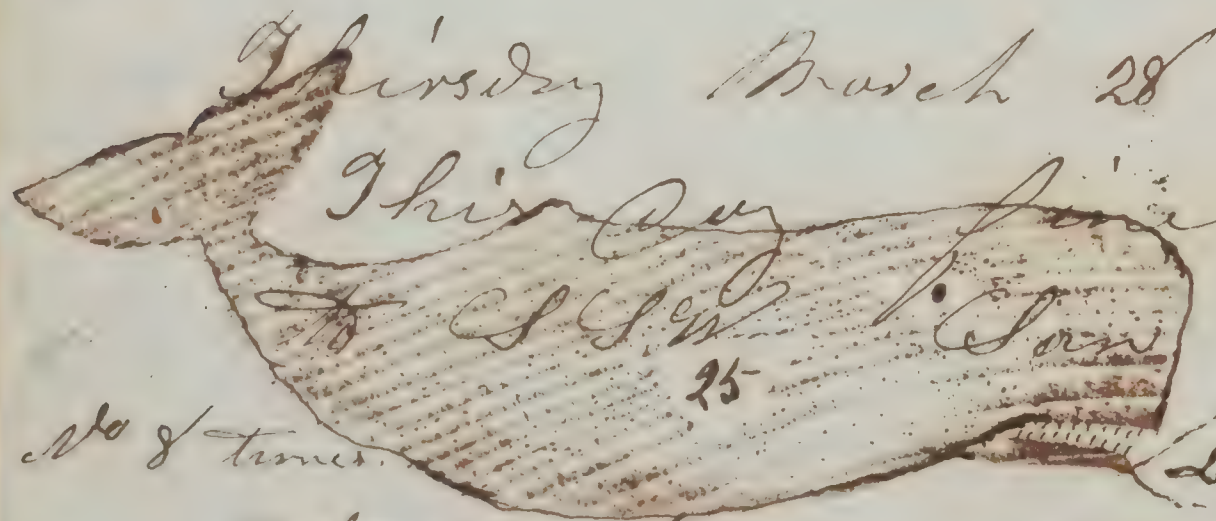 Thirsday March 28
This Day fine
to S S W Saw
25
No 8 times.